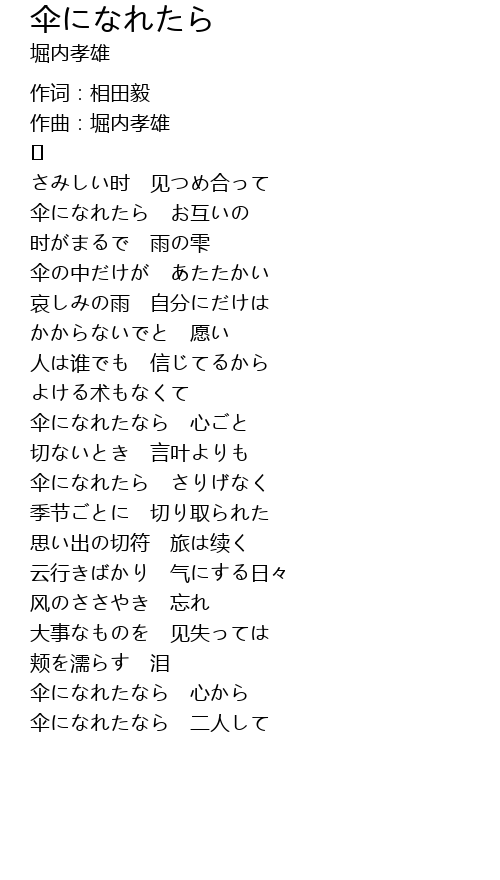 伞になれたら
堀内孝雄
作词：相田毅
作曲：堀内孝雄
さみしい时　见つめ合って
伞になれたら　お互いの
时がまるで　雨の雫
伞の中だけが　あたたかい
哀しみの雨　自分にだけは
かからないでと　愿い
人は谁でも　信じてるから
よける术もなくて
伞になれたなら　心ごと
切ないとき　言叶よりも
伞になれたら　さりげなく
季节ごとに　切り取られた
思い出の切符　旅は续く
云行きばかり　气にする日々
风のささやき　忘れ
大事なものを　见失っては
颊を濡らす　泪
伞になれたなら　心から
伞になれたなら　二人して